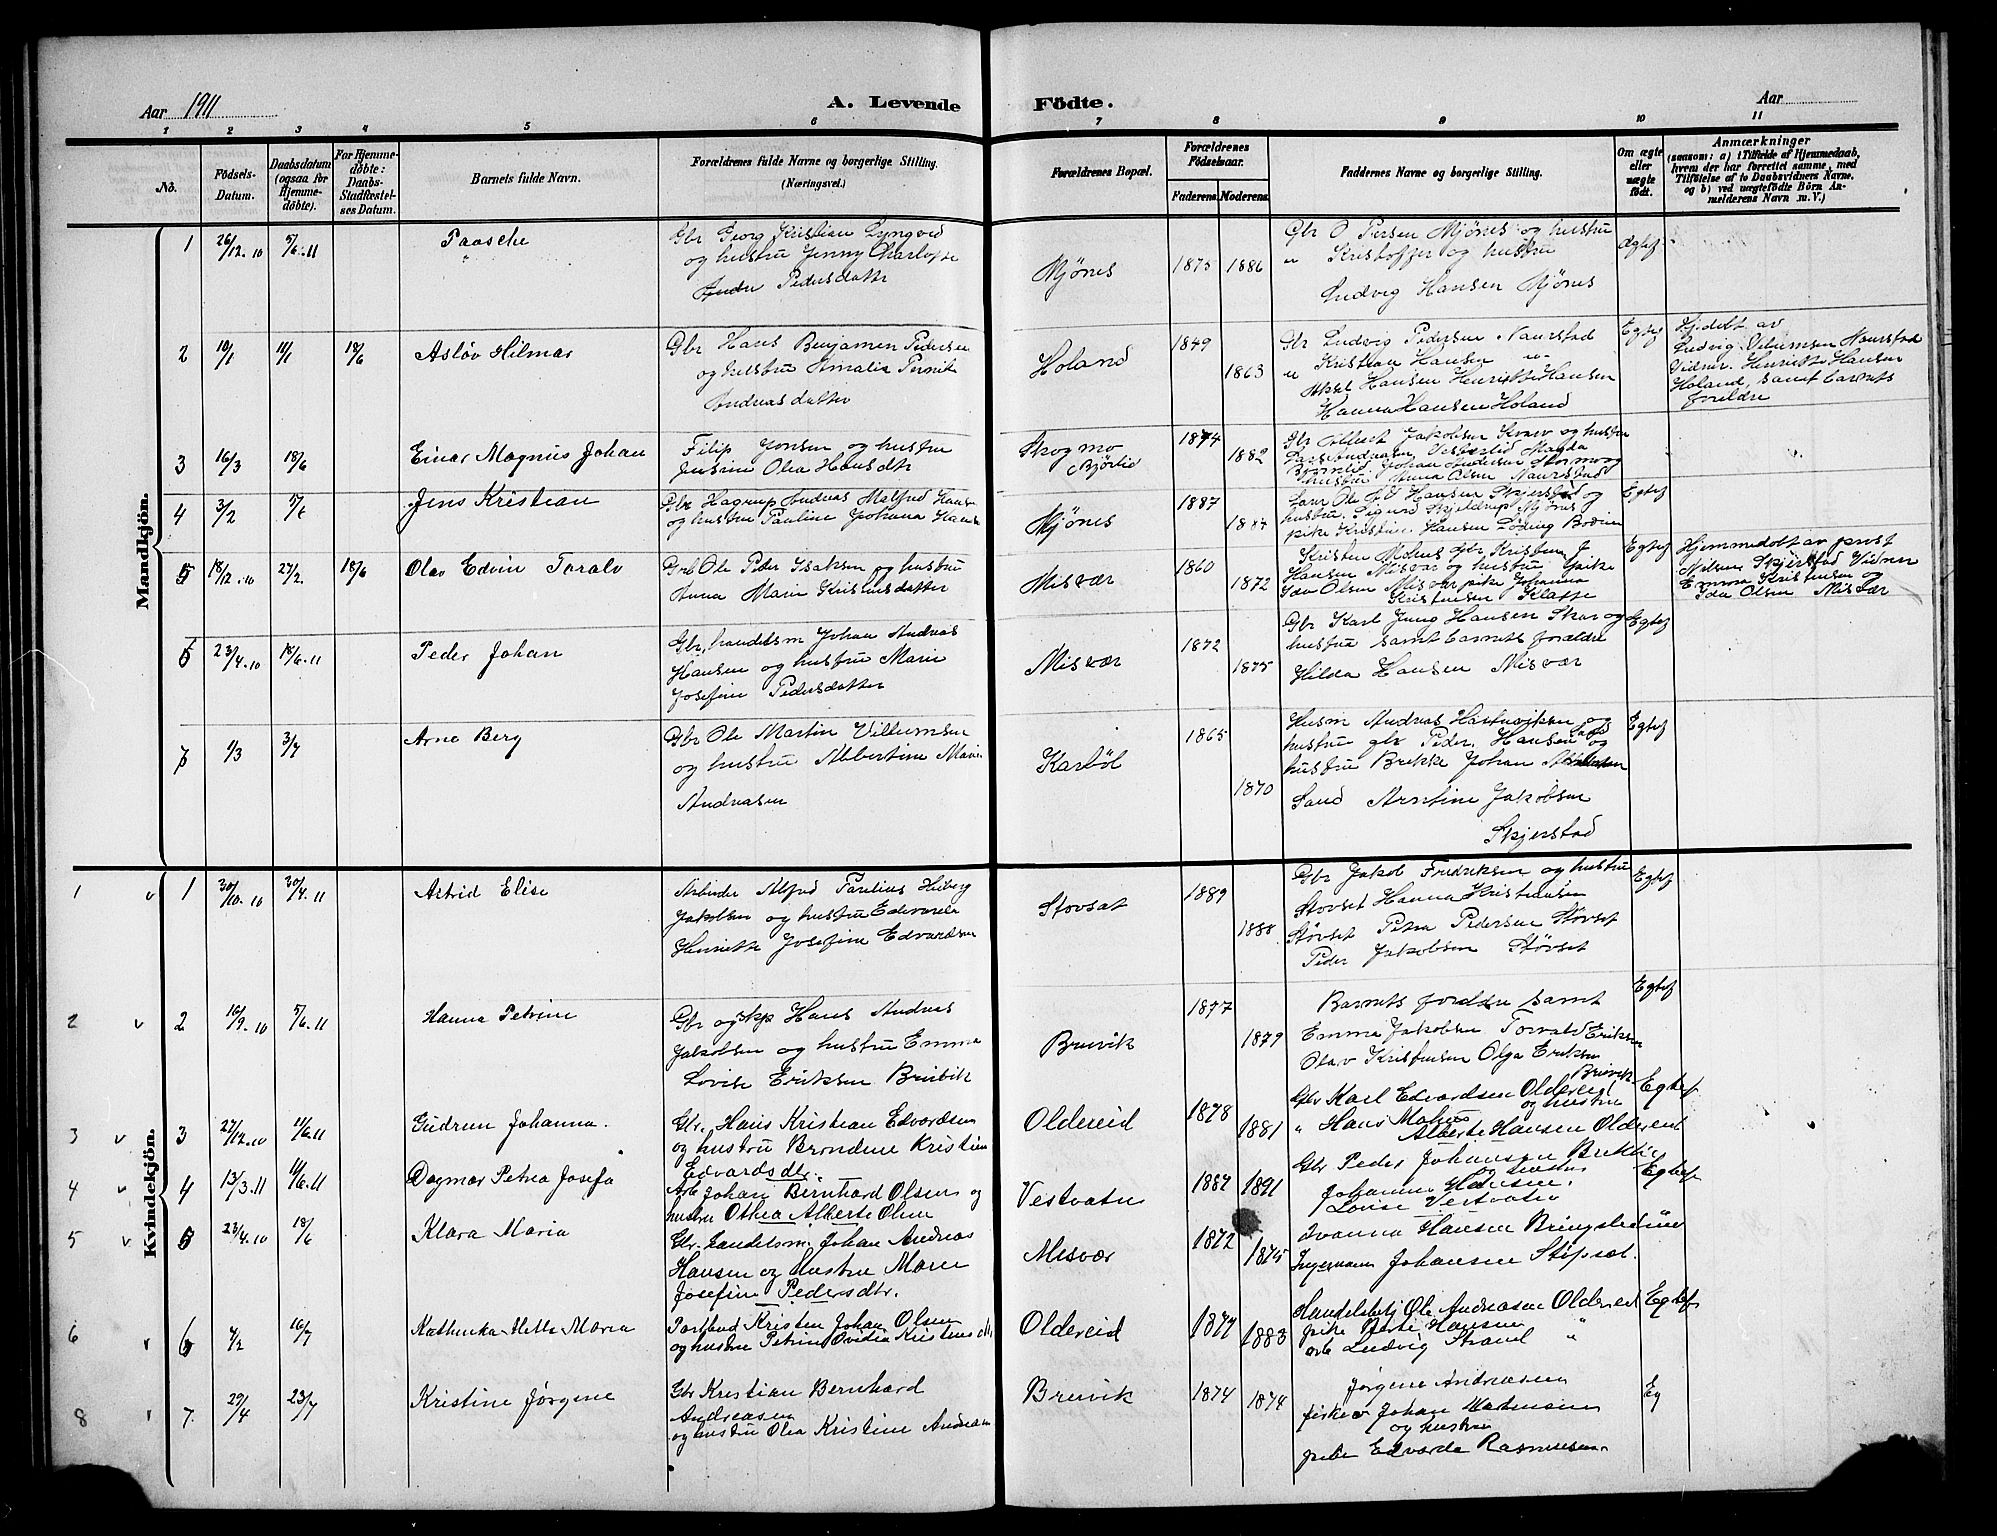 Aar 1911
A. Levende Födte.
Aar
1 2 3 4 5 6 7 8 9 10 11
No.
Födsels-Datum.
Daabsdatum (ogsaa for Hjemme-döbte).
For Hjemme-döbte: Daabs-Stadfæstel-ses Datum.
Barnets fulde Navn.
Forældrenes fulde Navne og borgerlige Stilling.
(Næringsvei.)
Forældrenes Bopæl.
Forældrenes Födselsaar.
Faderens. Moderens.
Faddernes Navne og borgerlige Stilling.
Om ægte eller uægte født.
Anmærkninger
(saasom: a) i Tilfælde af Hjemmedaab,
hvem der har forrettet samme, med
Tilföielse af to Daabsvidners Navne,
og b) ved uægtefödte Börn An-
melderens Navn m. V.)
Mandkjön.
1 26/12.10 5/6.11 Paasche
Gbr Georg Kristian Lyngved
og hustru Jenny Charlotte
Pedersdatter
Mjönes 1875 1886
Gbr O Persen Mjönes og hustru
" Kristoffer og hustru
Ludvig Hansen Mjönes
Ægtef
2 10/1 11/1 18/6 Asløv Hilmar
Gbr Hans Benjamen Pedersen
og hustru Amalie Pernik
Andreasdatter
Holand 1849 1863
Gbr Ludvig Pedersen Naurstad
" Kristian Hansen "
Aksel Hansen Henriette Hansen
Hanna Hansen Holand
Egtef
Hjdøbt av
Ludvig Vilumsen Naurstad
Vidner: Henriette Hansen
Holand, samt barnets
foreldre
3 16/3 18/6 Einar Magnus Johan
Filip Jonsen og hustru
Jensine Olea Hansdtr
Skogmo
Bjørlid
1874 1882
Gbr Jakobsen og hustru
Magda
Johan Andersen Stormo og
hustru Anna Olsen Naurstad
4 3/2 5/6 Jens Kristian
Gbr Hagrup Andreas Malfred Hansen
og hustru Pauline Johana Hansen
Mjönes 1887 1887
Ole Hansen Skjerstad og
hustru. Sigurd Skjeldrup Mjönes
pike Kristine Hansen Løding Bodin
Egtef
5 18/12.10 27/2. 18/6 Olav Edvin Toralv
Grb Ole Peder Isaksen og hustru
Anna Marie Kristensdatter
Misvær 1860 1872
Kristen Moens Gbr Kristen J
Hansen Misvær og hustru pike
Ida Olsen Misvær pike Johanna
Kristensen Klætte
Egtef
Hjemmedøbt av prost
Nilsen Skjerstad Vidner
Emma Kristensen og
Ida Olsen Misvær
6 23/4.10 18/6.11 Peder Johan
Gbr, handelsm Johan Andreas
Hansen og hustru Marie
Josefine Pedersdatter
Misvær 1872 1875
Gbr Karl Jung Hansen Skar og
hustru samt barnets foreldre
Hilda Hansen Misvær
Egtef
7 1/3 3/7 Arne Berg
Gbr Ole Martin Villumsen
og hustru Albertine Marie
Andreasen
Karbøl 1865 1870
Husm Andreas og
hustru gbr Peder Hansen og
hustru Brekke Johan
Sand Arntine Jakobsen
Skjerstad
Egtef
Kvindekjön.
1 v 1 30/10.10 30/4.11 Astrid Elise
Arbeider Alfred Paulius Hiberg
Jakobsen og hustru Edvarda
Henriette Josefine Edvardsen
Stovset 1889 1888
Gbr Jakob Fredriksen og hustru
Stovset Hanna Kristiansen
Støvset Petra Pedersen Støvset
Peder Jakobsen Støvset
Egtef
2 v 2 16/9.10 5/6.11 Hanna Petrine
Gbr og skp Hans Andreas
Jakobsen og hustru Emma
Lovise Eriksen Breivik
Breivik 1877 1879
Barnets foreldre samt
Emma Jakobsen Torvald Eriksen
Olav Kristensen Olga Eriksen
Breivik
Egtef
3 v 3 27/12.10 11/6.11 Gudrun Johanna.
Gbr. Hans Kristian Edvardsen
og hustru Brondine Kristine
Edvardsdtr.
Oldereid 1878 1881
Gbr Karl Edvardsen Oldereid
og hustru
" Hans Mohus
Alberte Hansen Oldereid
Egtef
4 v 4 13/3.11 11/6.11 Dagmar Petrea Josefa
Arb Johan Bernhard Olsen og
hustru Othea Alberte Olsen
Vestvatn 1887 1891
Gbr Peder Johansen Brekke
og hustru
Johanne Hansen.
Lovise Vestvatn
Egtef
5 v 5 23/4.10 18/6 Klara Maria
Gbr. Landelsm. Johan Andreas
Hansen og hustru Marie
Josefine Pedersdtr.
Misvær 1872 1875
Ivanna Hansen Bringsli
Ingemann Johansen Stipset.
6 6 7/2 16/7 Kathinka Mette Maria
Kristen Johan Olsen
og hustru Petrine Ovidia Kristensdtr
Oldereid 1877 1883
Handelsbetj Ole Andreasen Oldereid
pike Berte Hansen
arb Ludvig Strand "
Egtef
8 7. 29/4 23/7 Kristine Jørgene
Gbr Kristian Bernhard
Andreasen
og hustru Olea Kristine Andreasen
Breivik 1874 1874
Jørgene Andreasen
fisker Johan Martinsen
og hustru
pike Edvarda Rasmussen.
Eg